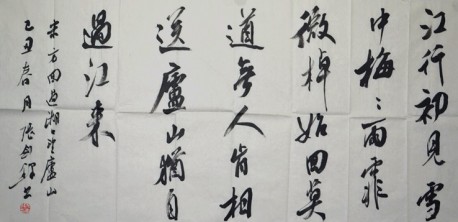 江行初見雪
中梅〻雨霏
微棹始回莫
道無人肯相
送廬山猶自
過江來
宋方回過湖口望廬山
己丑春月張